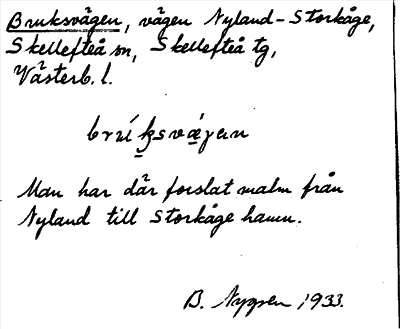 Bruksvägen, vägen Nyland-Storkåge,
Skellefteå sn, Skellefteå tg,
Västerb. l.
Man har där forslat malm från
Nyland till Storkåge hamn.
B. 1933.